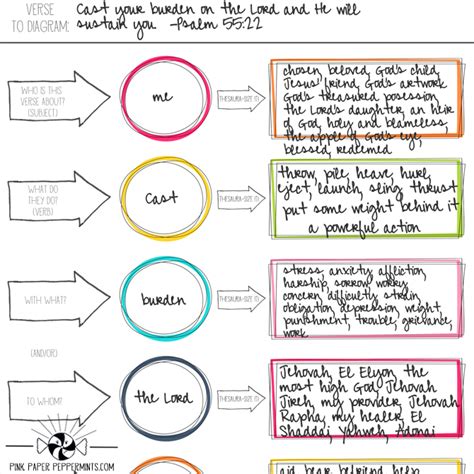 VERSE
TO DIAGRAM:
Cast your burden on the Lord and He will
sustain you -Psalm 55:22
WHO IS THIS
VERSE ABOUT?
(SUBJECT)
me
THESAURA-SIZE IT!
chosen, beloved, God's child,
Jesus' friend, God's artwork
God's treasured posession,
the Lord's daughter, an heir
of God, holy and blameless,
the apple of God's eye,
blessed, redeemed
WHAT DO
THEY DO?
(VERB)
Cast
THESAURA-SIZE IT!
throw, pile, heave, hurl,
eject, launch, sling, thrust
put some weight behind it
a powerful action
WITH WHAT?
burden
THESAURA-SIZE IT!
stress, anxiety, affliction,
harship, sorrow, worry,
concern, difficulty, strain,
obligation, depression, weight,
punishment, trouble, grievance,
work
(AND/OR)
TO WHOM?
the Lord
THESAURA-SIZE IT!
Jehovah, El Elyon, the
most high God, Jehovah
Jireh, my provider, Jehovah
Rapha, my healer, El
Shaddai, Yahweh, Adonai
PINK PAPER PEPPERMINTS.COM
aid, bear, befriend, help